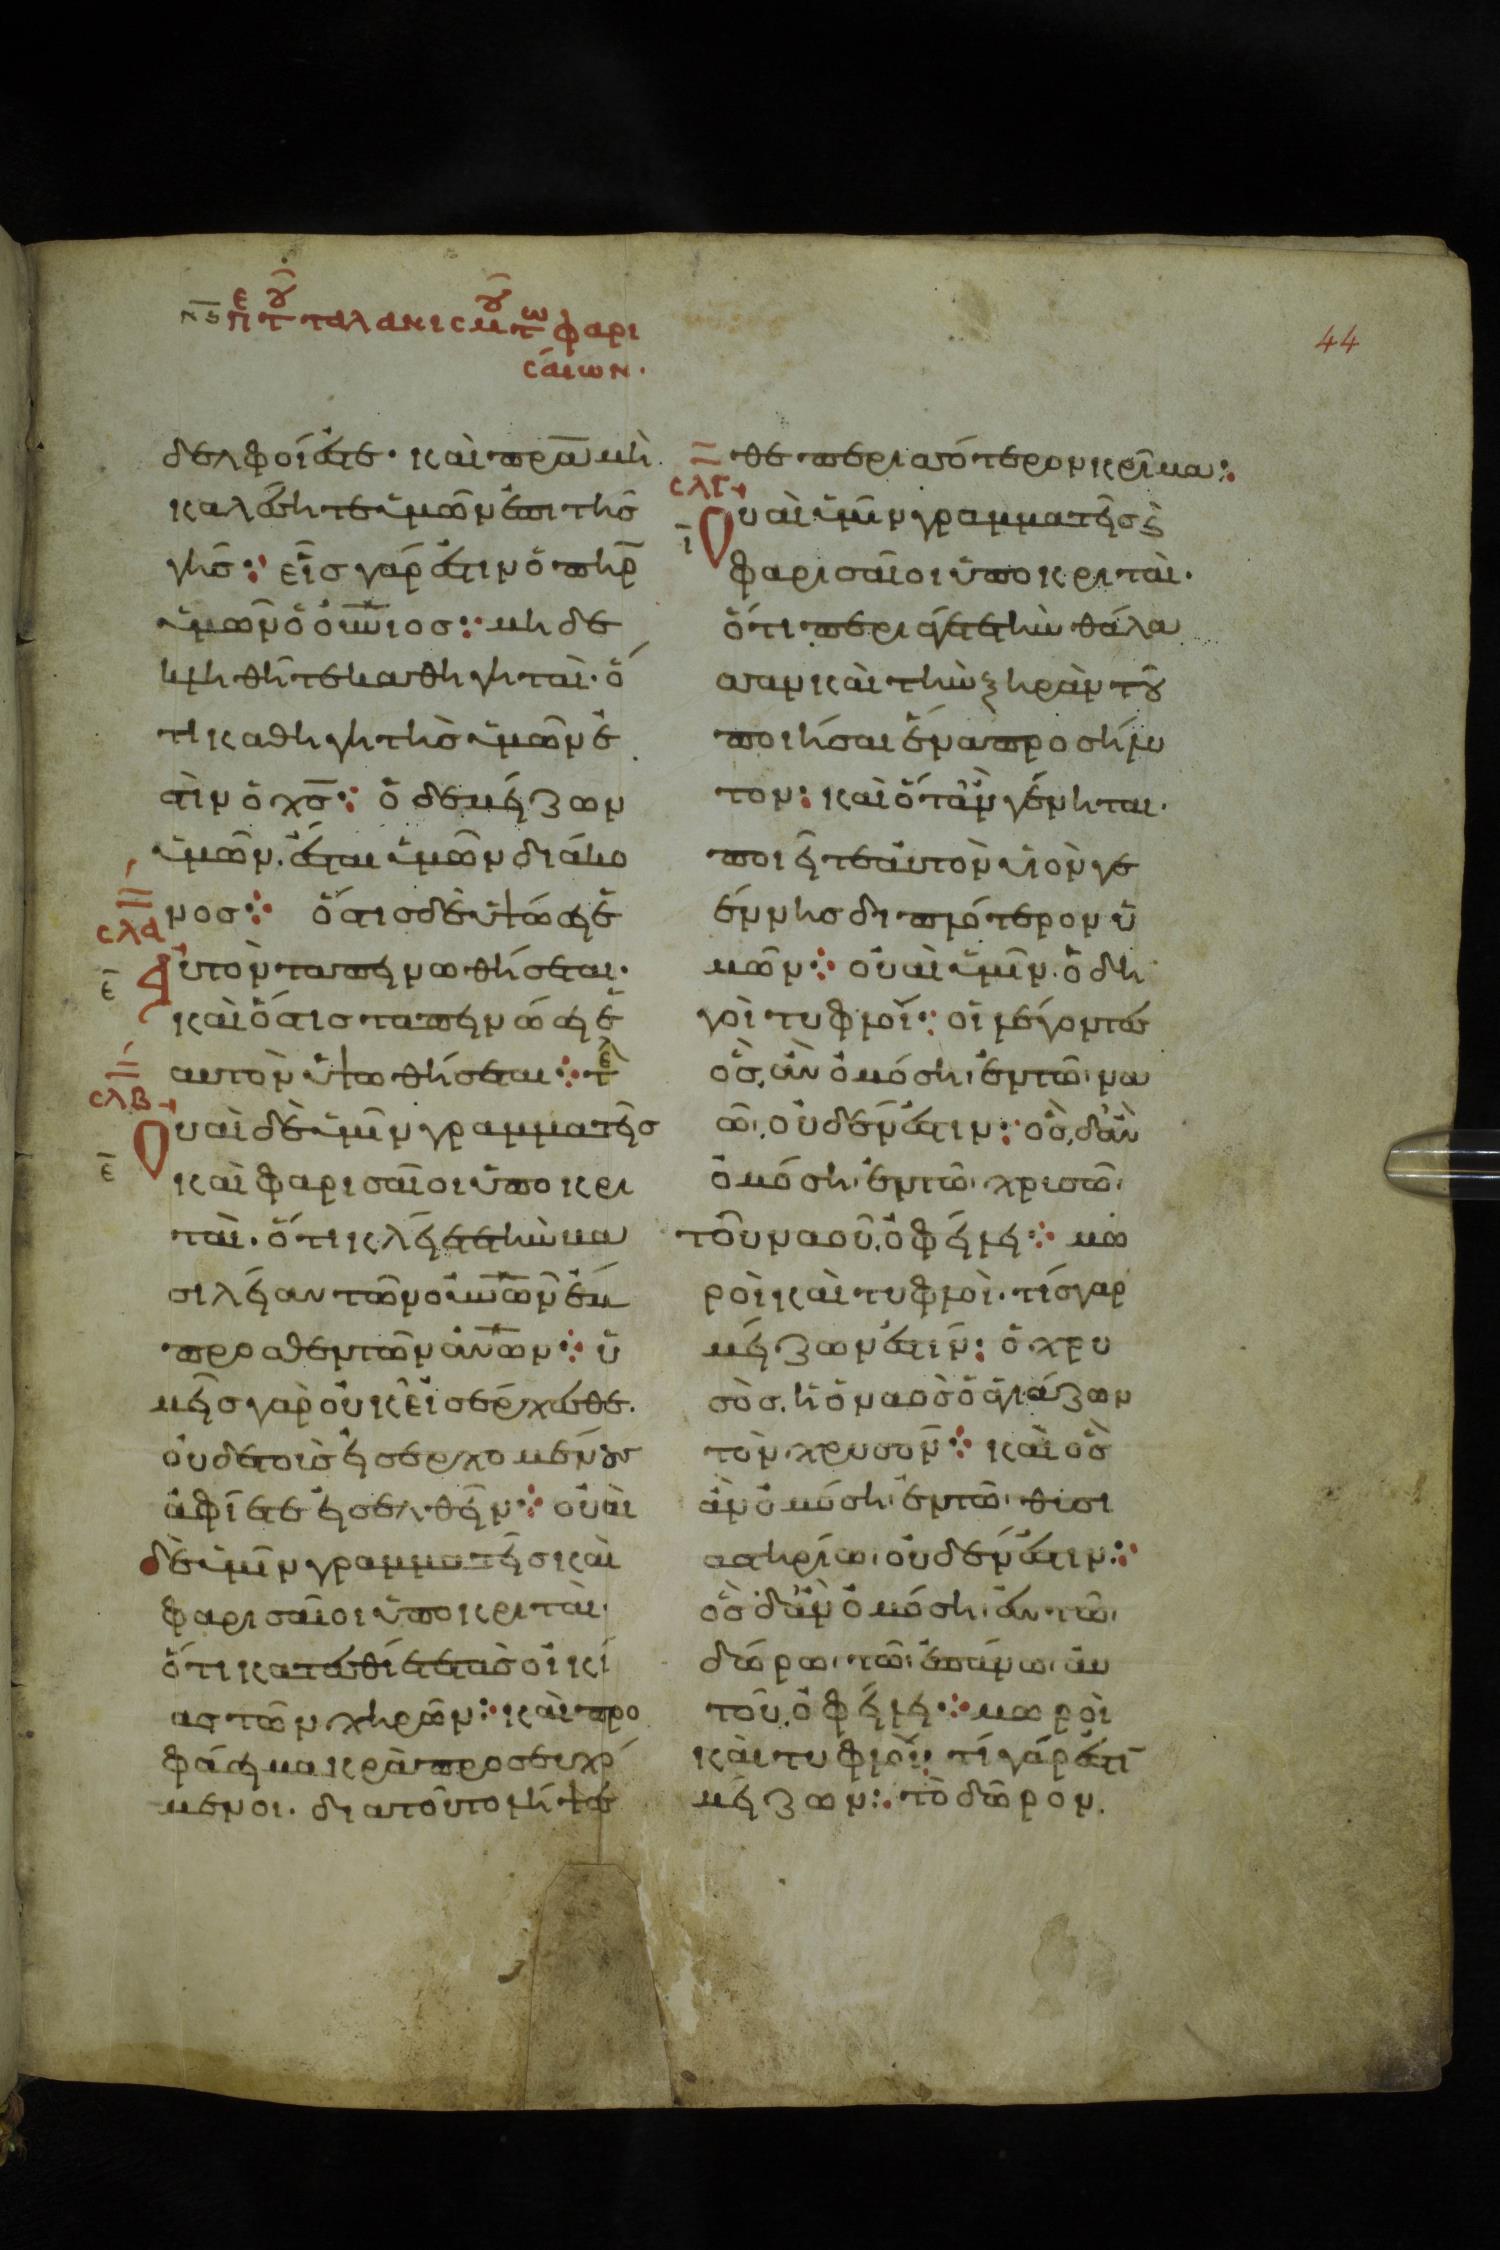 ν̅ϛ̅ πε τοῦ ταλανισμοῦ τω φαρι
σάιων·
44
δελφοί ἐστε· καὶ πρ̅α̅ μὴ
καλέσητε ὑμῶν ἐπι τῆσ
γῆσ: εἷσ γαρ ἐστιν ὁ πη̅ρ̅
ὑμῶν ὁ οὐ̅ν̅ιοσ: μηδε
κληθῆτε καθηγηταὶ· ὅ
τι καθηγητὴσ ὑμῶν ἐ
στὶν ὁ χ̅σ̅: ὁ δε μείζων
ὑμῶν. ἔσται ὑμῶν διάκο
νοσ: ὅστισ δὲ ὑψώσει ἑ
σλα
ε̅
αὐτὸν ταπεινωθήσεται·
καὶ ὅστισ ταπεινώσει ἑ
αυτὸν ὑψωθήσεται: τελ
σλβ
ε̅
Ουαὶ δὲ ὑμῖν γραμματεῖσ
καὶ φαρισαῖοι ὑποκρι
ταὶ· ὅτι κλείετε τὴν βα
σιλείαν τῶν οὐ̅ν̅ῶν ἔμ
προσθεν τῶν ἀν̅ων: ὑ
μεῖσ γὰρ οὐκ εἰσέρχεσθε·
οὐδε τοὺσ εἰσερχομένουσ
ἀφίετε εἰσελθεῖν: οὐαὶ
δὲ ὑμῖν γραμματεῖσ καὶ
φαρισαῖοι ὑποκριταὶ·
ὅτι κατεσθίετε τὰσ οἰκί
ασ τῶν χηρῶν: καὶ προ
φάσει μακρὰ προσευχό
μενοι· δια τοῦτο λήψε
σθε περισσότερον κρῖμα:
σλγ
ι̅
Ουαὶ ὑμῖν γραμματεῖσ ϗ
φαρισαῖοι ὑποκριταὶ·
ὅτι περιάγετε τὴν θάλα
σσαν καὶ τὴν ξηρὰν τοῦ
ποιήσαι ἕνα προσήλυ
τον: καὶ ὅταν γένηται·
ποιεῖτε αὐτὸν υἱὸν γε
έννησ διπλότερον ὑ
μῶν: οὐαὶ ὑμῖν. ὁδη
γοὶ τυφλοί: οἱ λέγοντεσ
ὃσ, ἂν ὀμόση, ἐν τῶ, να
ῶ, οὐδέν ἐστιν: ὃσ, δ' ἂν
ὀμόση, ἐν τῶ, χρισῶ,
τοῦ ναοῦ, ὀφείλει: μω
ροὶ καὶ τυφλοὶ· τίσ γαρ
μείζων ἐστίν: ὁ χρυ
σὸσ. ἢ ὁ ναὸσ ὁ ἁγιάζων
τὸν χρυσον: καὶ ὃσ
ἂν ὀμόση, ἐν τῶ, θυσι
αστηρίω, οὐδέν ἐστιν:
ὃσ δ' ἂν ὀμόση, ἐν τῶ,
δώρω, τῶ, ἐπάνω, αυ
τοῦ, ὀφείλει: μωροὶ
καὶ τυφλοὶ: τί γάρ ἐστῑ
μείζων: τὸ δῶρον,